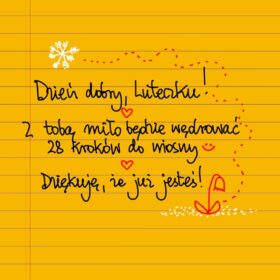 Dzień dobry, Luteczku!
Z tobą miło będzie wędrować
28 kroków do wiosny
Dziękuję, że już jesteś!